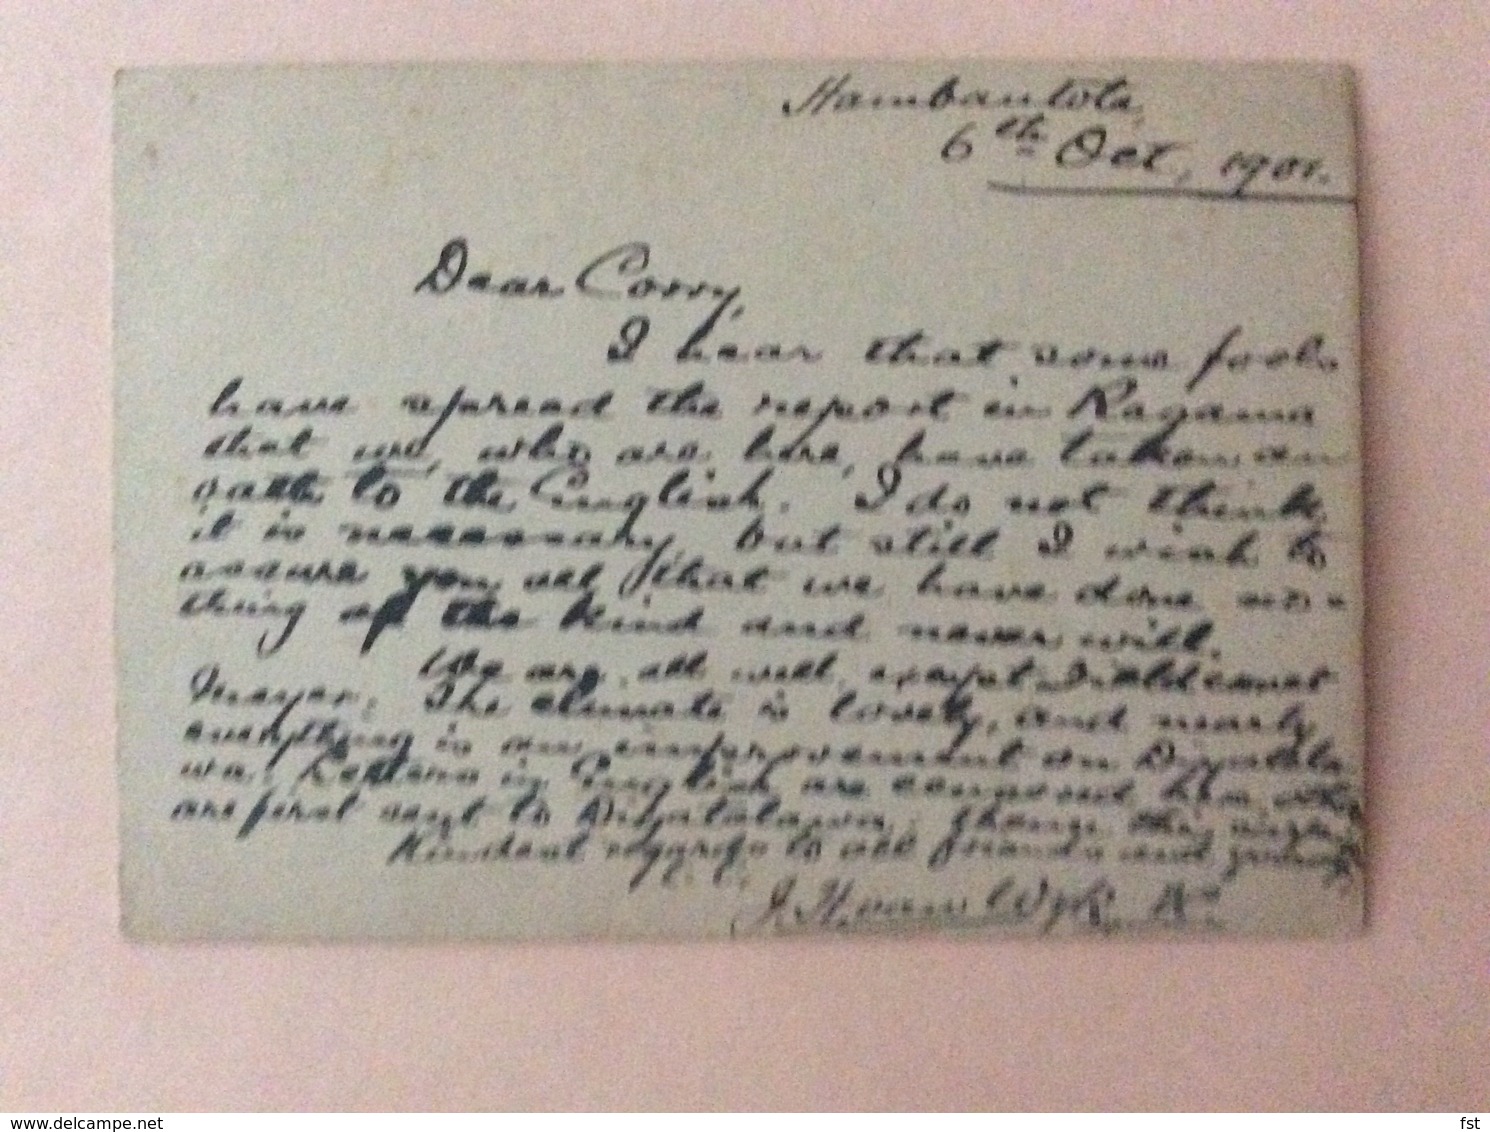 Hambantota,
6th Oct, 1901.
Dear Corry,
I hear that some fools
have spread the report in Ragama
that we, who are here, have taken an
oath to the English. I do not think
it is necessary but still I wish to
assure you all that we have done no-
thing of the kind and never will.
We are all well, except
Meyer. The climate is lovely, and nearly
everything is an improvement on Diyatala-
wa. Letters in English are censored here, 
are first sent to Diyatalawa.
Kindest regards to all friends and
J. H. van Wyk
fst